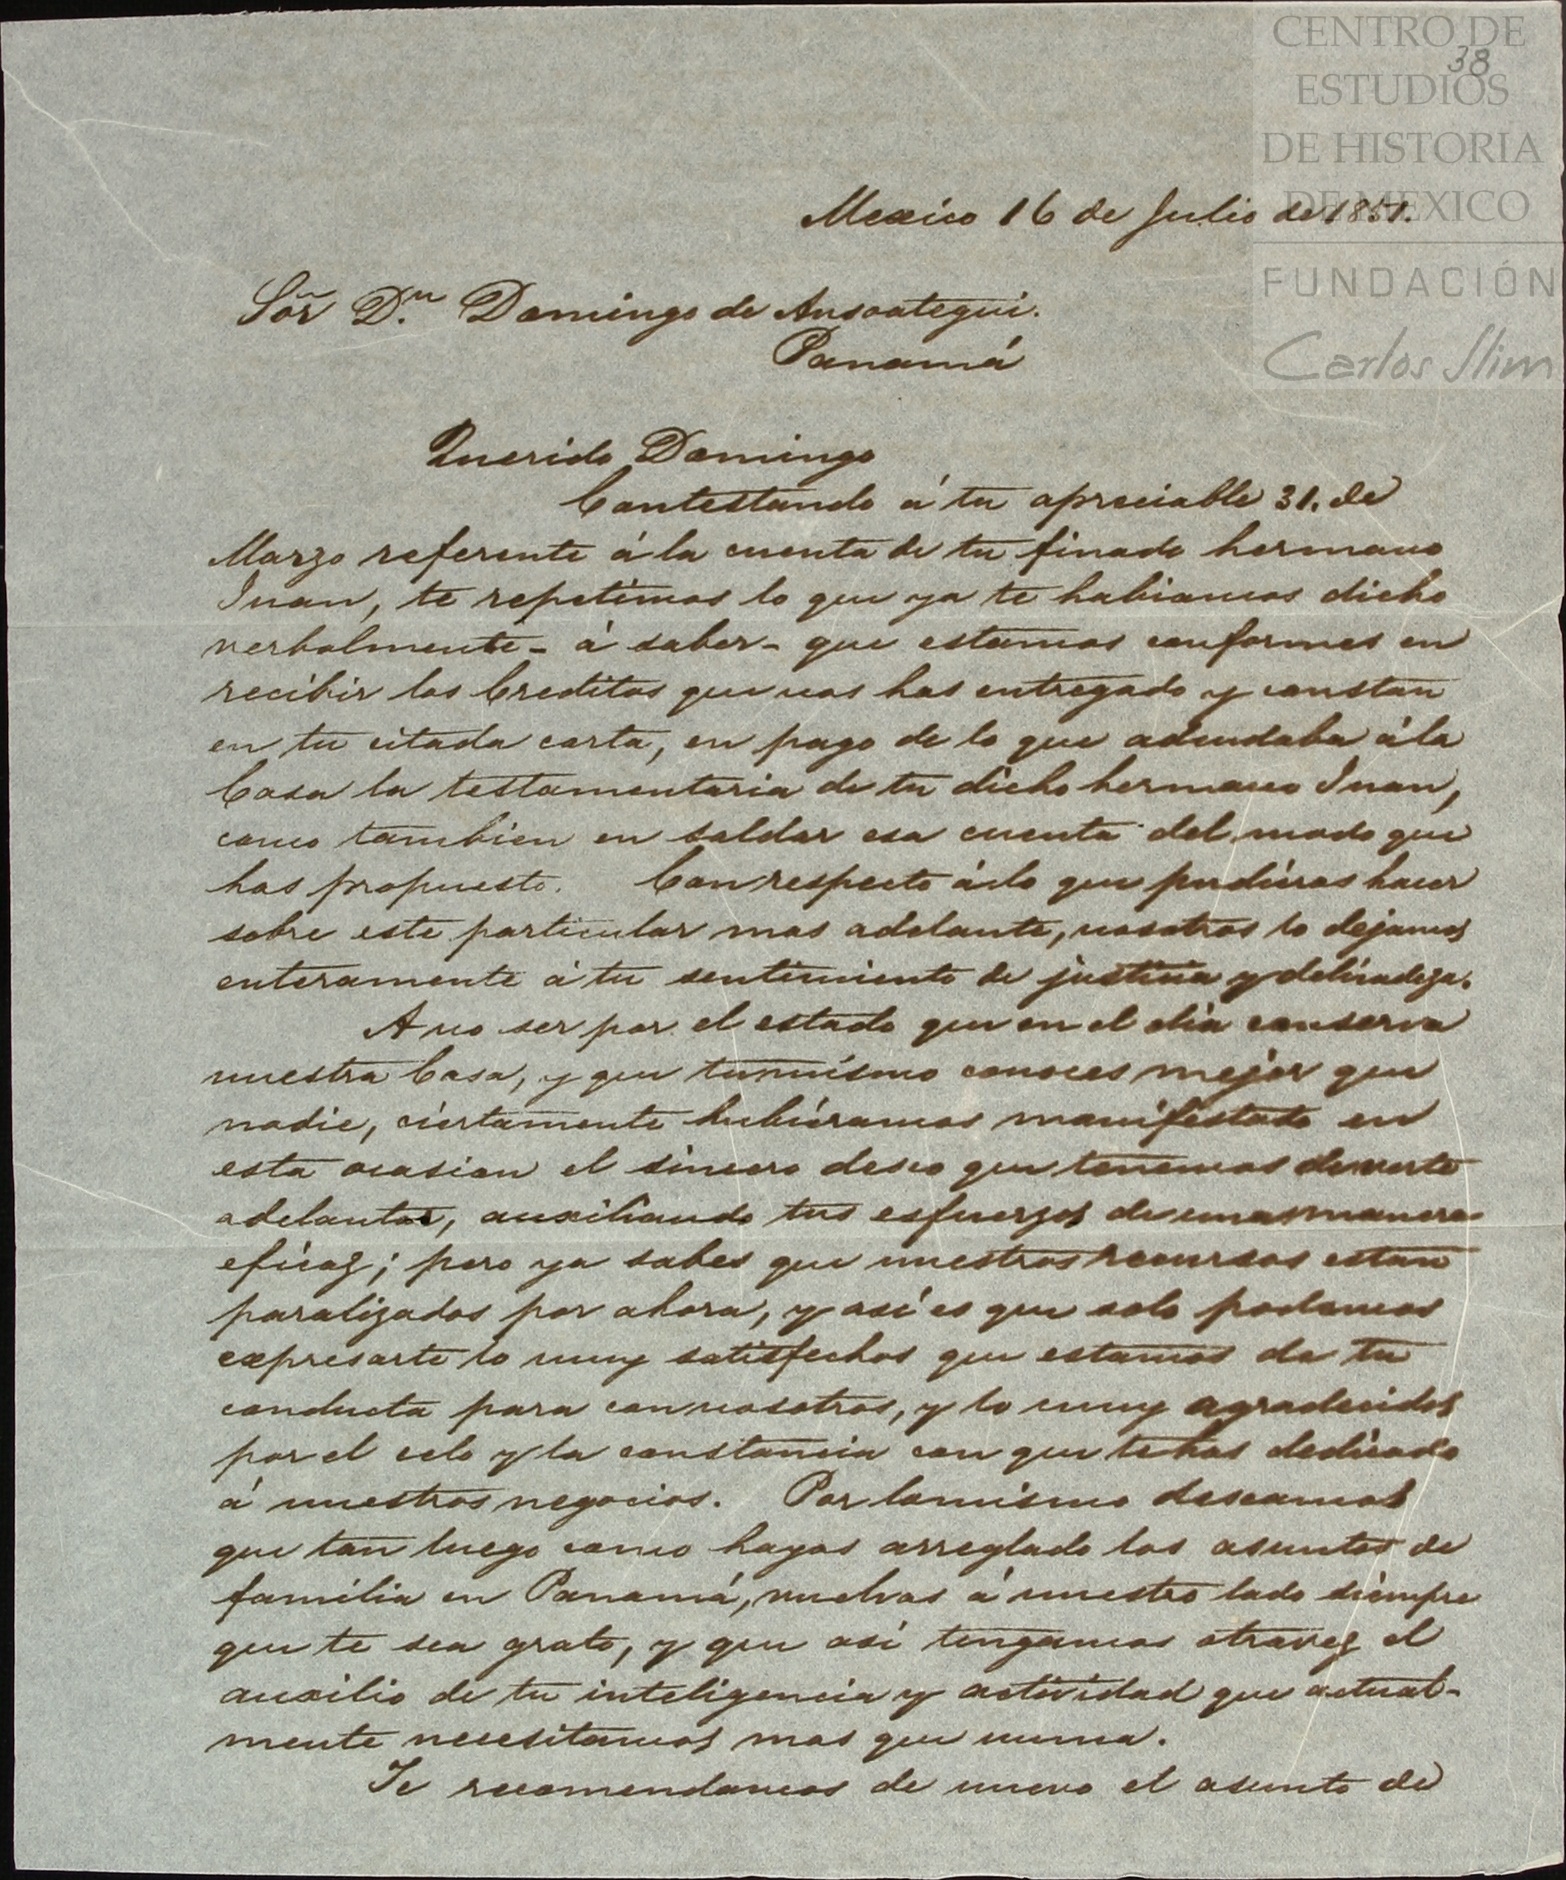 CENTRO DE
ESTUDIOS
DE HISTORIA
DE MEXICO
FUNDACIÓN
Carlos Slim
38
Mexico 16 de Julio de 1851.
Sōr D.n Domingo de Ansoategui.
Panamá
Querido Domingo
Contestando á tu apreciable 31. de
Marzo referente á la cuenta de tu finado hermano
Juan, te repetimos lo que ya te habiamos dicho
verbalmente - á saber - que estamos conformes en
recibir los Creditos que nos has entregado y constan
en tu citada carta, en pago de lo que adeudaba á la
Casa la testamentaria de tu dicho hermano Juan,
como tambien en saldar esa cuenta del modo que
has propuesto. Con respecto á lo que pudieras hacer
sobre este particular mas adelante, nosotros lo dejamos
enteramente á tu sentimiento de justicia y delicadeza.
A no ser por el estado que en el dia conserva
nuestra Casa, y que tu mismo conoces mejor que
nadie, ciertamente hubiéramos manifestado en
esta ocasion el sincero deseo que tenemos de verte
adelantar, auxiliando tus esfuerzos de una manera
eficaz; pero ya sabes que nuestros recursos estan
paralizados por ahora, y así es que solo podemos
expresarte lo muy satisfechos que estamos de tu
conducta para con nosotros, y lo muy agradecidos
por el celo y la constancia con que te has dedicado
á nuestros negocios. Por lo mismo deseamos
que tan luego como hayas arreglado los asuntos de
familia en Panamá, vuelvas á nuestro lado siempre
que te sea grato, y que así tengamos otra vez el
auxilio de tu inteligencia y actividad que actual-
mente necesitamos mas que nunca.
Te recomendamos de nuevo el asunto de